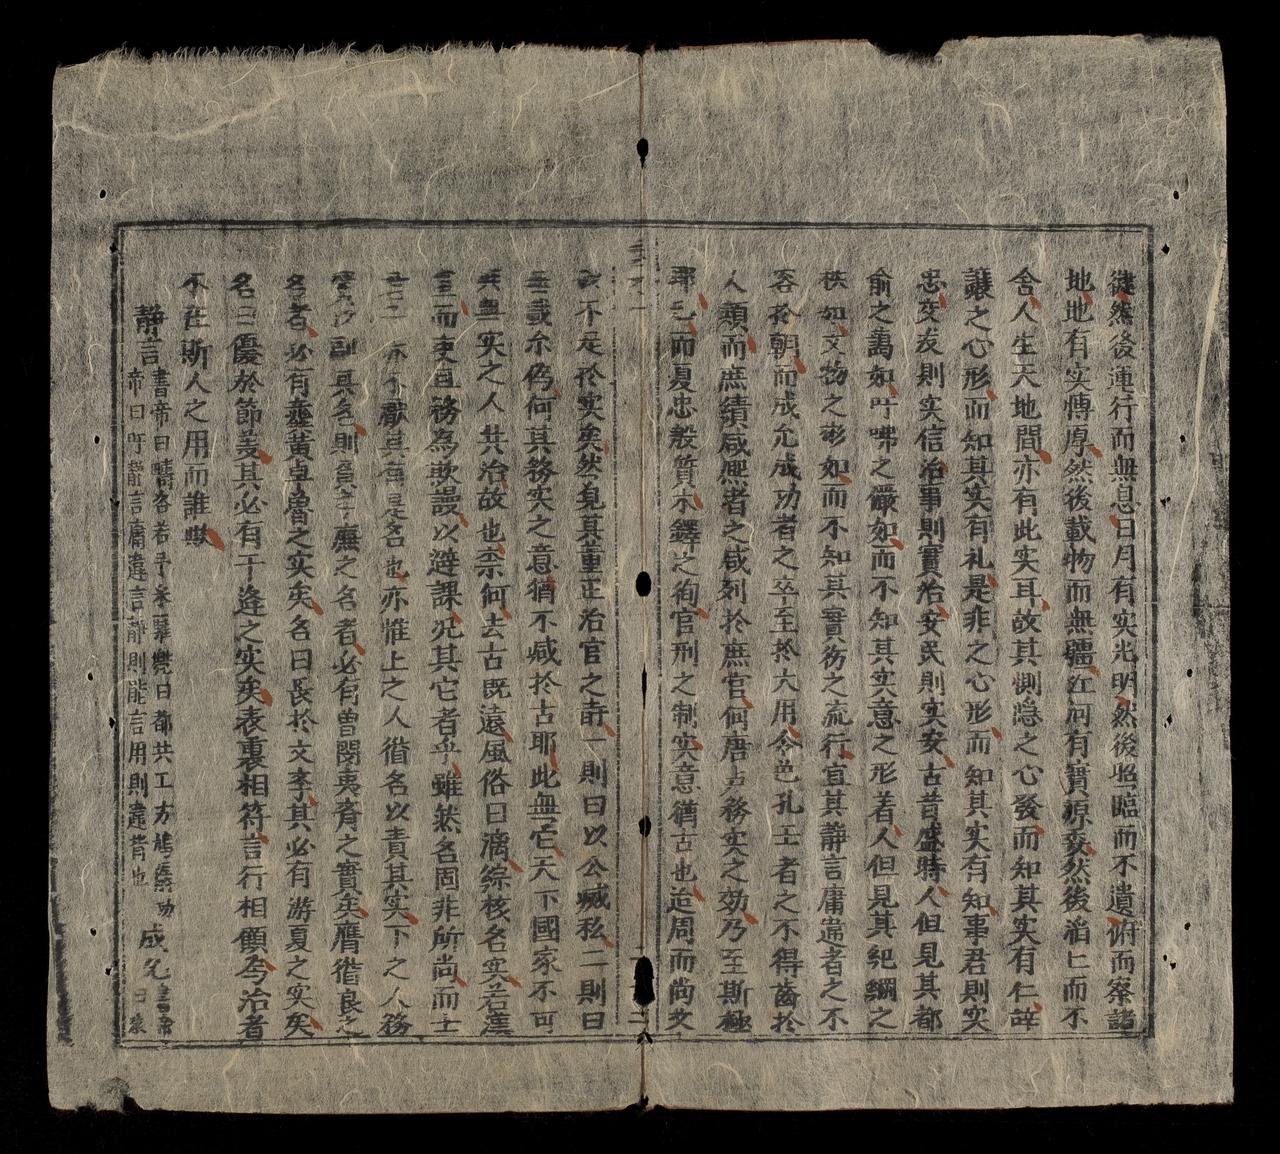 然後運行而無息日月有实光明然後照臨而不遺俯而察諸
地地有实慱厚然後載物而無疆江河有實源委然後滔而不
舍人生天地間亦有此实耳故其惻隐之心發而知其实有仁辞
讓之心形而知其实有礼是非之心形而知其实有知事君則实
忠交友則实信治事則實治安民則实安古昔盛時人但見其都
俞之藹如吁咈之嚴如而不知其实意之形着人但見其紀綱之
秩如文物之彬如而不知其實之流行宜其靜言庸違者之不
容於朝而成允成功者之卒至於大用令色孔壬者之不得齒於
人類而庶績咸熙者之咸列於庶官何唐虞務实之効乃至斯極
耶已而夏忠殷質木鐸之徇官刑之制实意猶古也迨周而尚文
不足於实矣然見其董正治官之時一則曰以公滅私二則曰
載尒僞何其務实之意猶不減於古耶此無它天下國家不可
無实之人共治故也柰何去古既遠風俗日漓綜核名实若漢
而吏且務為欺謾以避課况其它者乎雖然名固非所尚而士
亦不厭其是名也亦惟上之人循名以責其实下之人務
副其名則負之名者必有曽閔夷斉之實矣膺循良之
名者必有龔黄卓魯之实矣名曰長於文李其必有游夏之实矣
名曰優於節義其必有干逄之实矣表裏相符言行相顧今治者
不在斯人之用而誰欤
靜言
書帝曰疇咨若予采驩兜曰都共工方鳩僝功
帝曰吁靜言庸違言靜則能言用則違背也
成允